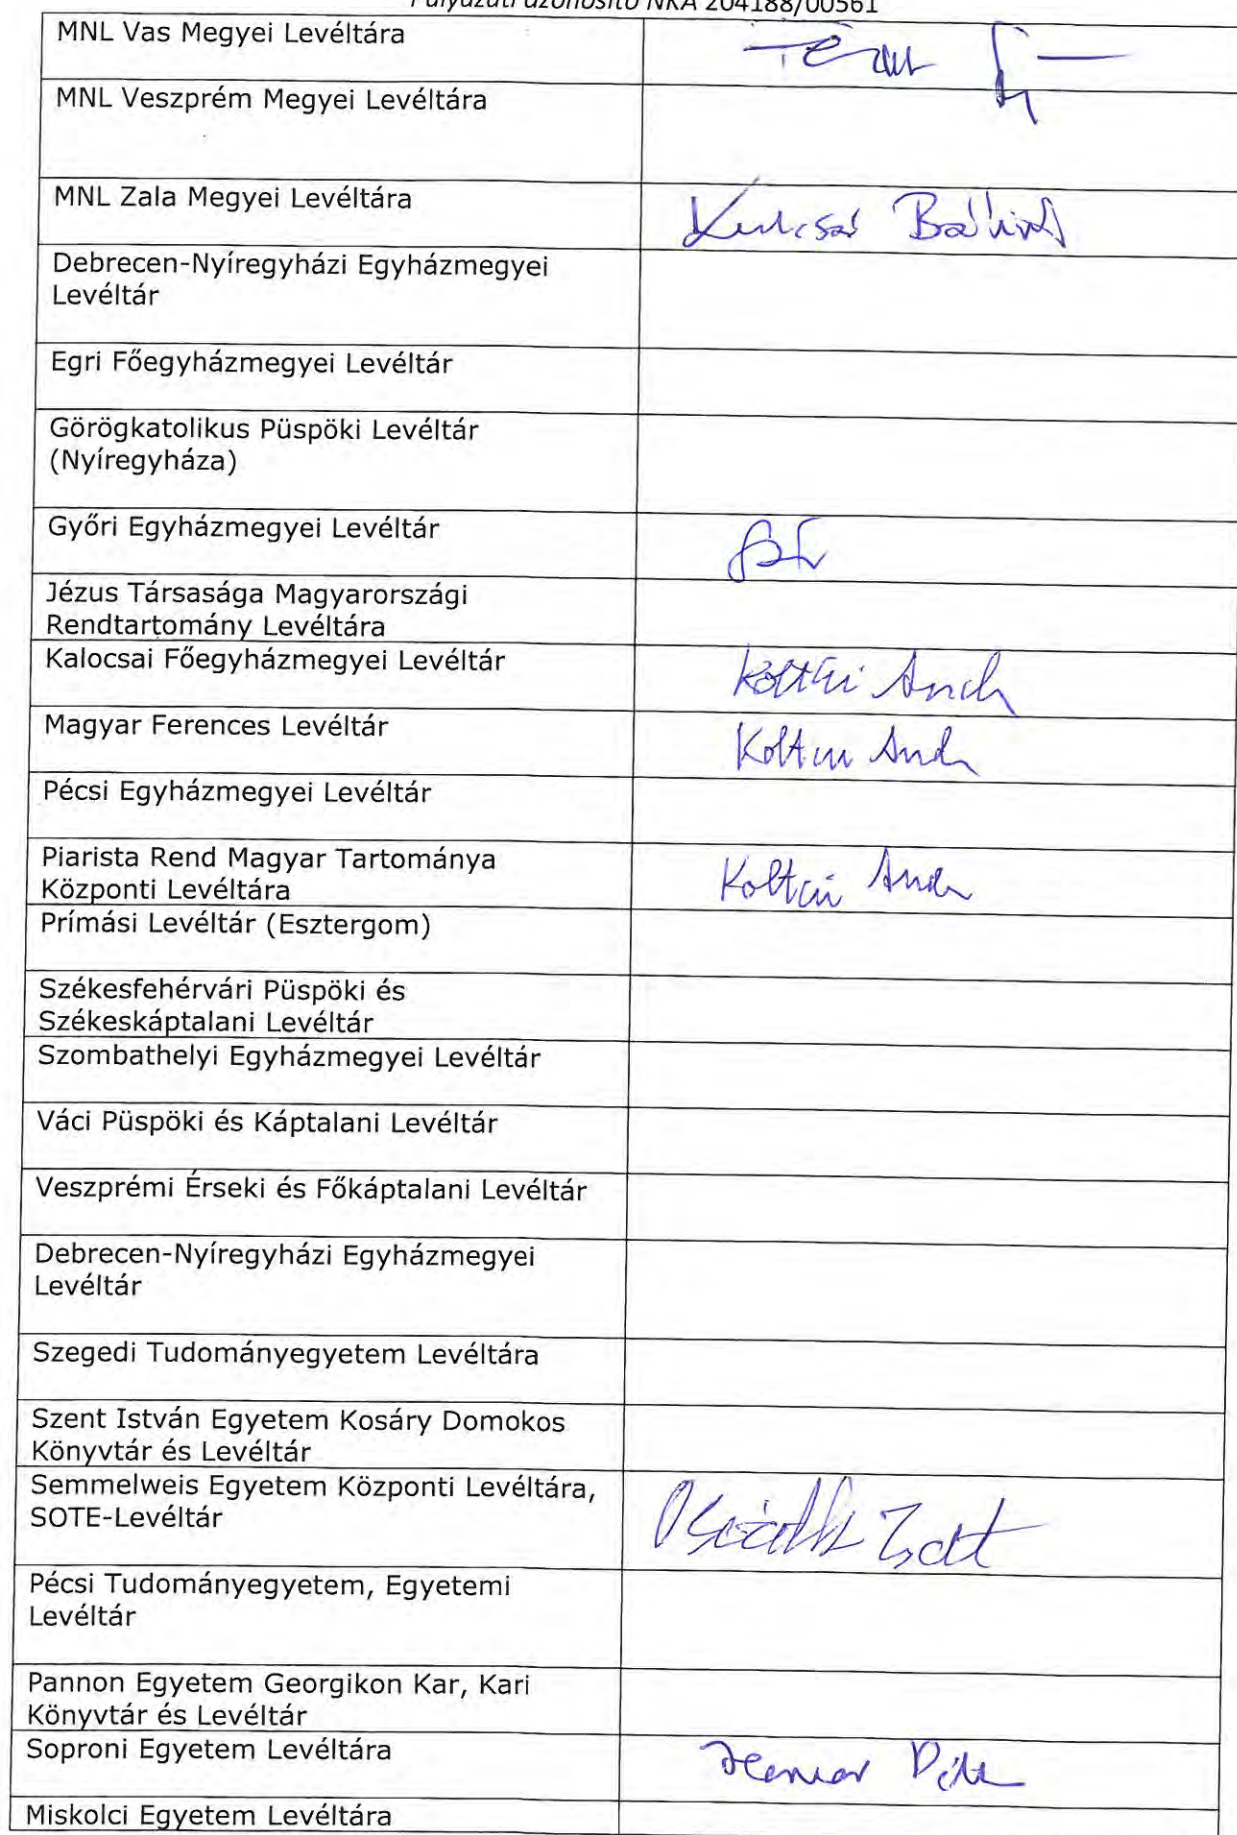 Pályázati azonosító NKA 204188/00561
MNL Vas Megyei Levéltára
MNL Veszprém Megyei Levéltára
MNL Zala Megyei Levéltára
Kulcsár Bálint
Debrecen-Nyíregyházi Egyházmegyei
Levéltár
Egri Főegyházmegyei Levéltár
Görögkatolikus Püspöki Levéltár
(Nyíregyháza)
Győri Egyházmegyei Levéltár
Jézus Társasága Magyarországi
Rendtartomány Levéltára
Kalocsai Főegyházmegyei Levéltár
Koltai András
Magyar Ferences Levéltár
Koltai András
Pécsi Egyházmegyei Levéltár
Piarista Rend Magyar Tartománya
Központi Levéltára
Koltai András
Prímási Levéltár (Esztergom)
Székesfehérvári Püspöki és
Székeskáptalani Levéltár
Szombathelyi Egyházmegyei Levéltár
Váci Püspöki és Káptalani Levéltár
Veszprémi Érseki és Főkáptalani Levéltár
Debrecen-Nyíregyházi Egyházmegyei
Levéltár
Szegedi Tudományegyetem Levéltára
Szent István Egyetem Kosáry Domokos
Könyvtár és Levéltár
Semmelweis Egyetem Központi Levéltára,
SOTE-Levéltár
Zsolt
Pécsi Tudományegyetem, Egyetemi
Levéltár
Pannon Egyetem Georgikon Kar, Kari
Könyvtár és Levéltár
Soproni Egyetem Levéltára
Miskolci Egyetem Levéltára